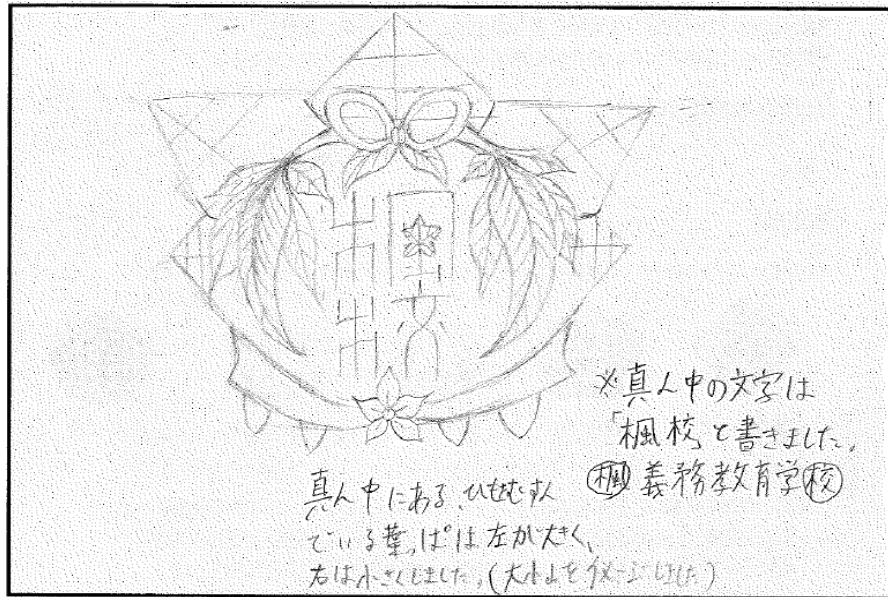 楓
校
※真ん中の文字は
「楓校」と書きました。
楓義務教育学校
真ん中にある、ひもをむすん
でいる葉っぱは左が大きく、
右は小さくしました。(大小山をイメージしました)